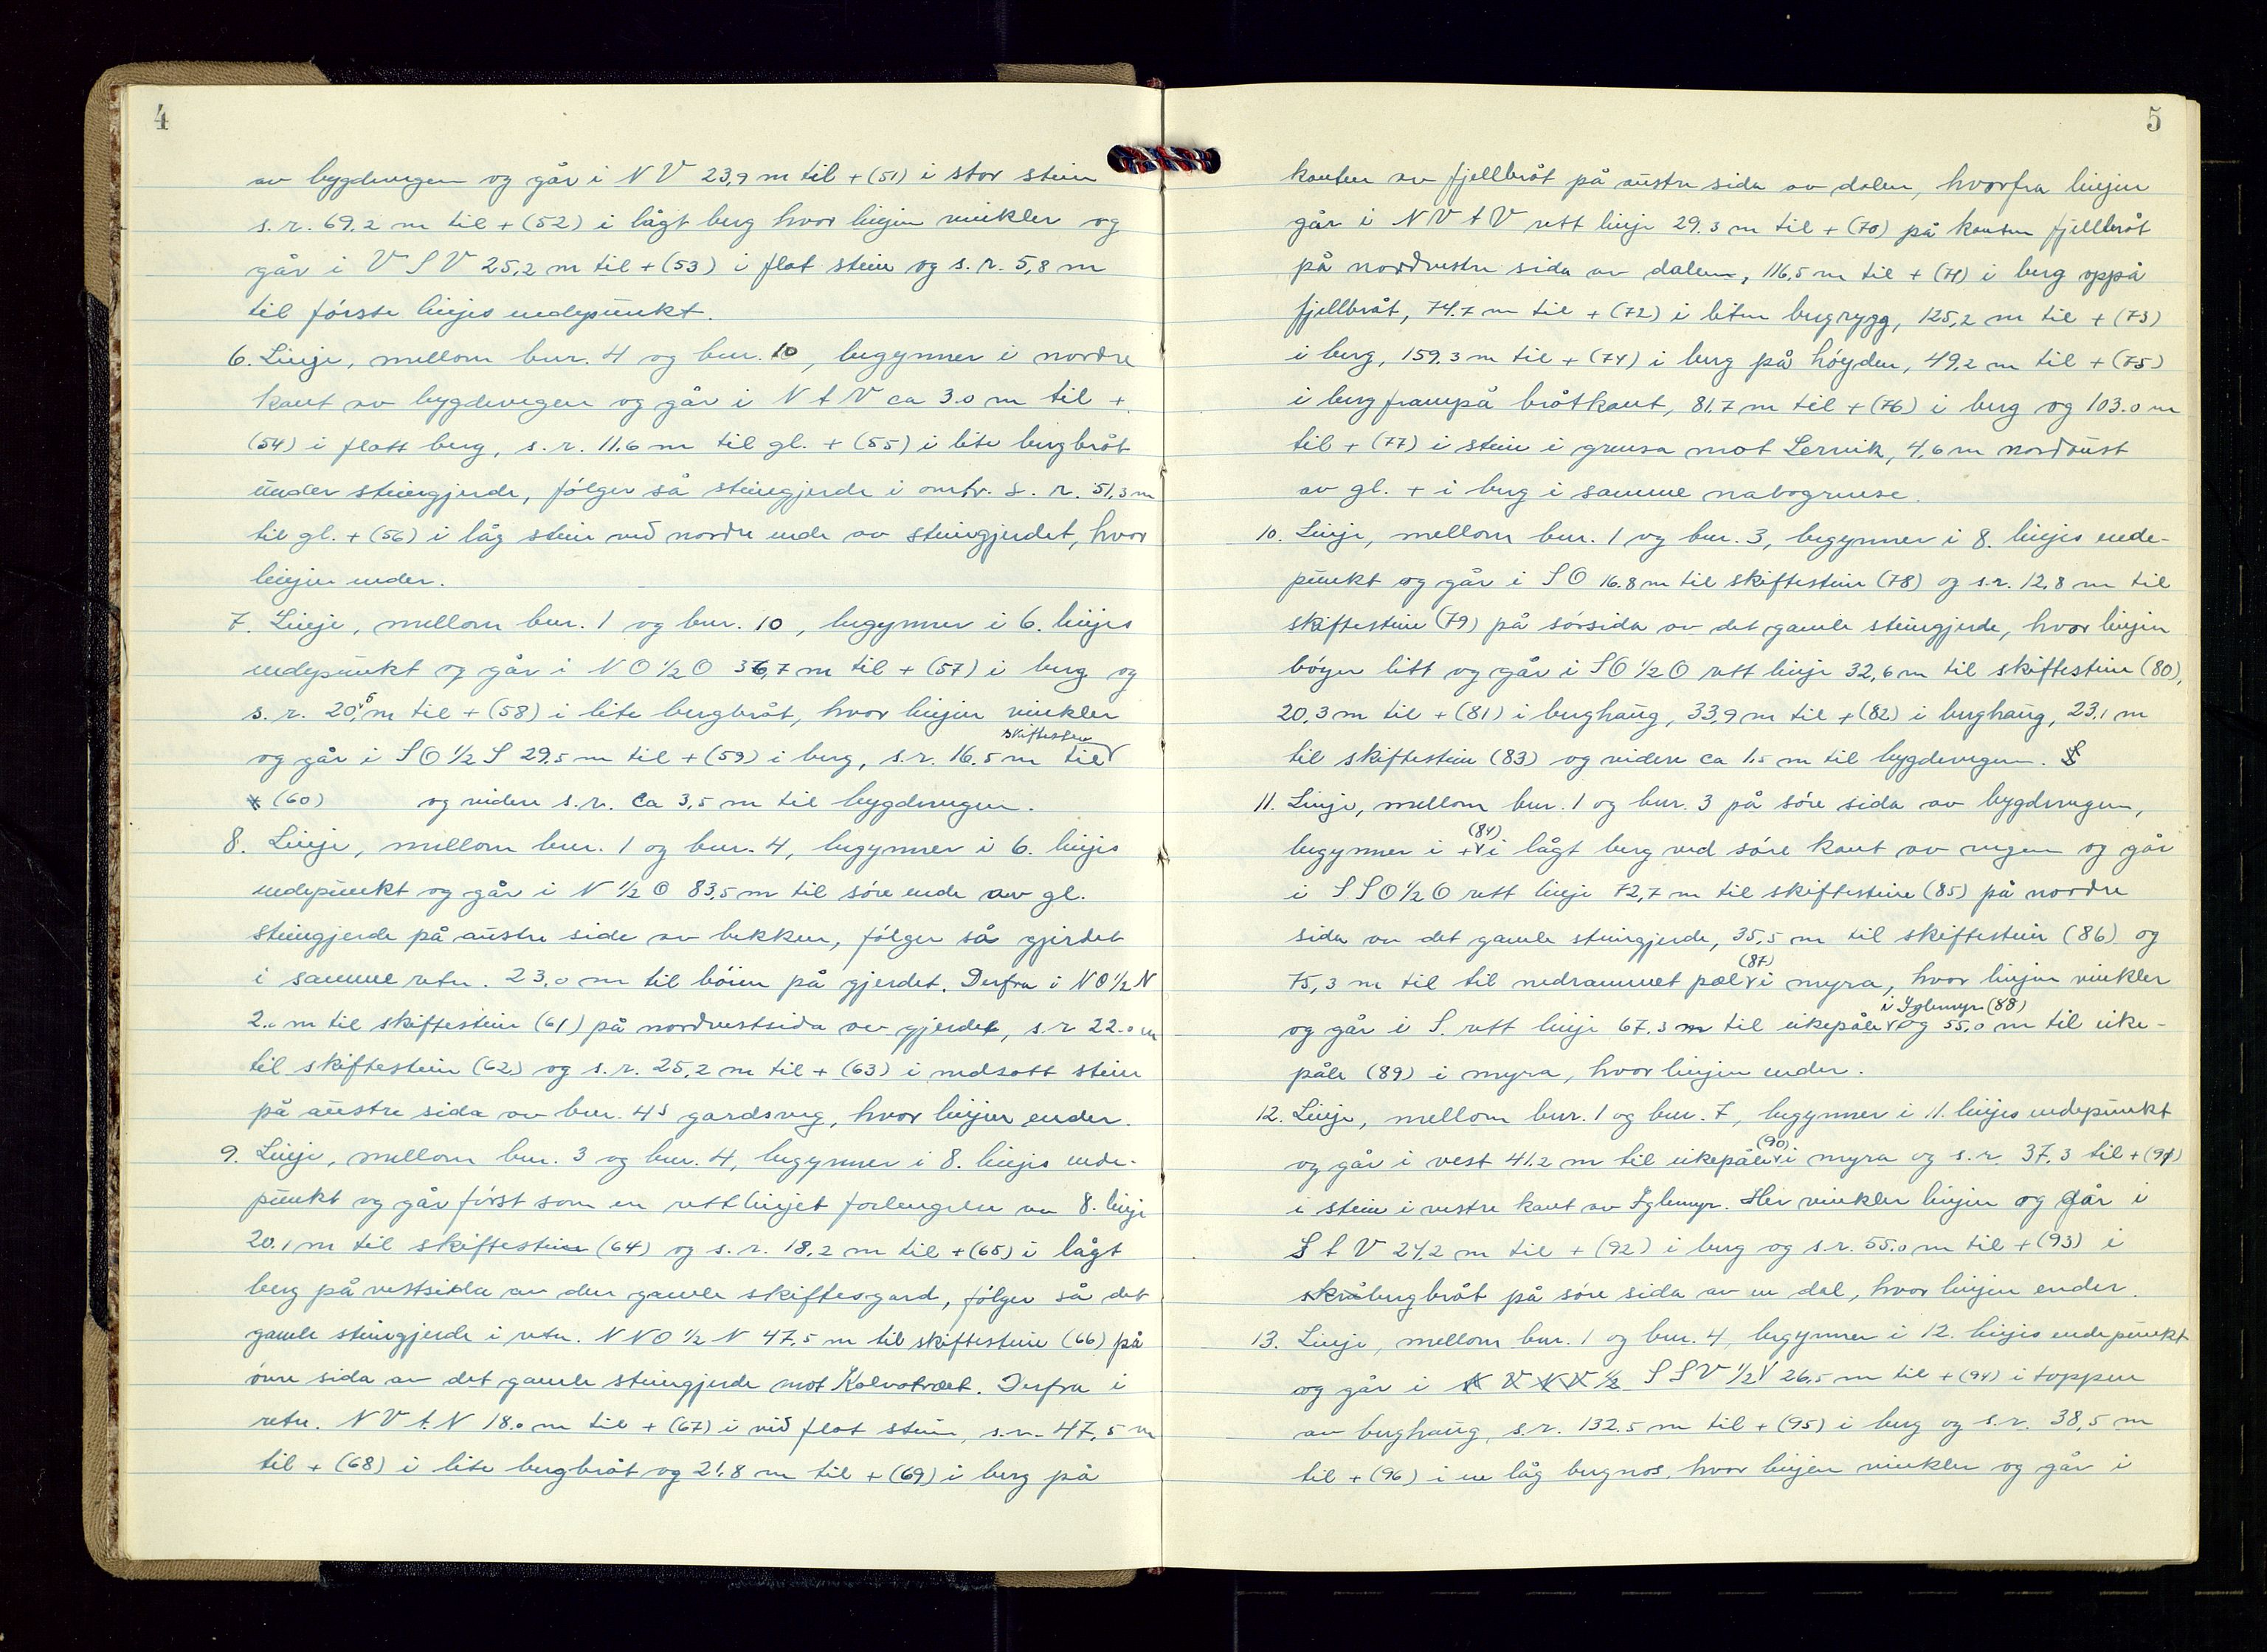 4
av bygdevegen og går i N V 23,9 m til + (51) i stor stein
s. r. 69,2 m til + (52) i lågt berg hvor linjen vinkler og
går i V S V 25,2 m til + (53) i flat stein og s. r. 5,8 m
til første linjes endepunkt.
6. Linje, mellom bnr. 4 og bnr. 10, begynner i nordre
kant av bygdevegen og går i N t V ca 3.0 m til +
(54) i flatt berg, s. r. 11.6 m til gl. + (55) i lite bergbråt
under steingjerde, følger så steingjerde i omtr. s. r. 51,3 m
til gl. + (56) i låg stein ved nordre ende av steingjerdet, hvor
linjen ender.
7. Linje, mellom bnr. 1 og bnr. 10, begynner i 6. linjes
endepunkt og går i N O ½ O 36,7 m til + (57) i berg og
s. r. 20,5 m til + (58) i lite bergbråt, hvor linjen vinkler
og går i S O ½ S 29,5 m til + (59) i berg, s. r. 16.5 m til skiftestein
(60) og videre s. r. ca 3,5 m til bygdevegen.
8. Linje, mellom bnr. 1 og bnr. 4, begynner i 6. linjes
endepunkt og går i N ½ O 83,5 m til søre ende av gl.
steingjerde på austre side av bekken, følger så gjerdet
i samme retn. 23,0 m til bøien på gjerdet. Derfra i N O ½ N
2.0 m til skiftestein (61) på nordvestsida av gjerdet, s. r 22.0 m
til skiftestein (62) og s. r. 25,2 m til + (63) i nedsatt stein
på austre sida av bnr. 4s gardsveg, hvor linjen ender.
9. Linje, mellom bnr. 3 og bnr. 4, begynner i 8. linjes ende-
punkt og går først som en rettlinjet forlengelse av 8. linje
20.1 m til skiftestein (64) og s. r. 18,2 m til + (65) i lågt
berg på vestsida av den gamle skiftesgard, følger så det
gamle steingjerde i retn. N N O ½ N 47,5 m til skiftestein (66) på
øvre sida av det gamle steingjerde mot Kalvatræet. Derfra i
retn. N V t. N 18.0 m til + (67) i vid flat stein, s. r. 47,5 m
til + (68) i lite bergbråt og 21,8 m til + (69) i berg på
5
kanten av fjellbråt på austre sida av dalen, hvorfra linjen
går i N V t V rett linje 29.3 m til + (70) på kanten fjellbråt
på nordvestre sida av dalen, 116,5 m til + (71) i berg oppå
fjellbråt, 74.7 m til + (72) i liten bergrygg, 125,2 m til + (73)
i berg, 159.3 m til + (74) i berg på høyden, 49,2 m til + (75)
i berg frampå bråtkant, 81.7 m til + (76) i berg og 103.0 m
til + (77) i stein i grensa mot Lervik, 4,6 m nordaust
av gl. + i berg i samme nabogrense.
10. Linje, mellom bnr. 1 og bnr. 3, begynner i 8. linjes ende-
punkt og går i S O 16.8 m til skiftestein (78) og s. r. 12,8 m til
skiftestein (79) på sørsida av det gamle steingjerde, hvor linjen
bøyer litt og går i S O ½ O rett linje 32,6 m til skiftestein (80),
20,3 m til + (81) i berghaug, 33,9 m til + (82) i berghaug, 23,1 m
til skiftestein (83) og videre ca 1.5 m til bygdevegen.
11. Linje, mellom bnr. 1 og bnr. 3 på søre sida av bygdevegen,
begynner i + (84) i lågt berg ved søre kant av vegen og går
i S S O ½ O rett linje 72,7 m til skiftestein (85) på nordre
sida av det gamle steingjerde, 35,5 m til skiftestein (86) og
75,3 m til til nedrammet pæl (87) i myra, hvor linjen vinkler
og går i S. rett linje 67.3 m til eikepåle i Iglemyr (88) og 55,0 m til eike-
påle (89) i myra, hvor linjen ender.
12. Linje, mellom bnr. 1 og bnr. 7, begynner i 11. linjes endepunkt
og går i vest 41.2 m til eikepåle (90) i myra og s. r. 37.3 til + (91)
i stein i vestre kant av Iglemyr. Her vinkler linjen og går i
S t V 24,2 m til + (92) i berg og s. r. 55.0 m til + (93) i
skråbergbråt på søre sida av en dal, hvor linjen ender.
13. Linje, mellom bnr. 1 og bnr. 4, begynner i 12. linjes endepunkt
og går i S S V ½ V 26,5 m til + (94) i toppen
av berghaug, s. r. 132.5 m til + (95) i berg og s. r. 38,5 m
til + (96) i en låg bergnos, hvor linjen vinkler og går i